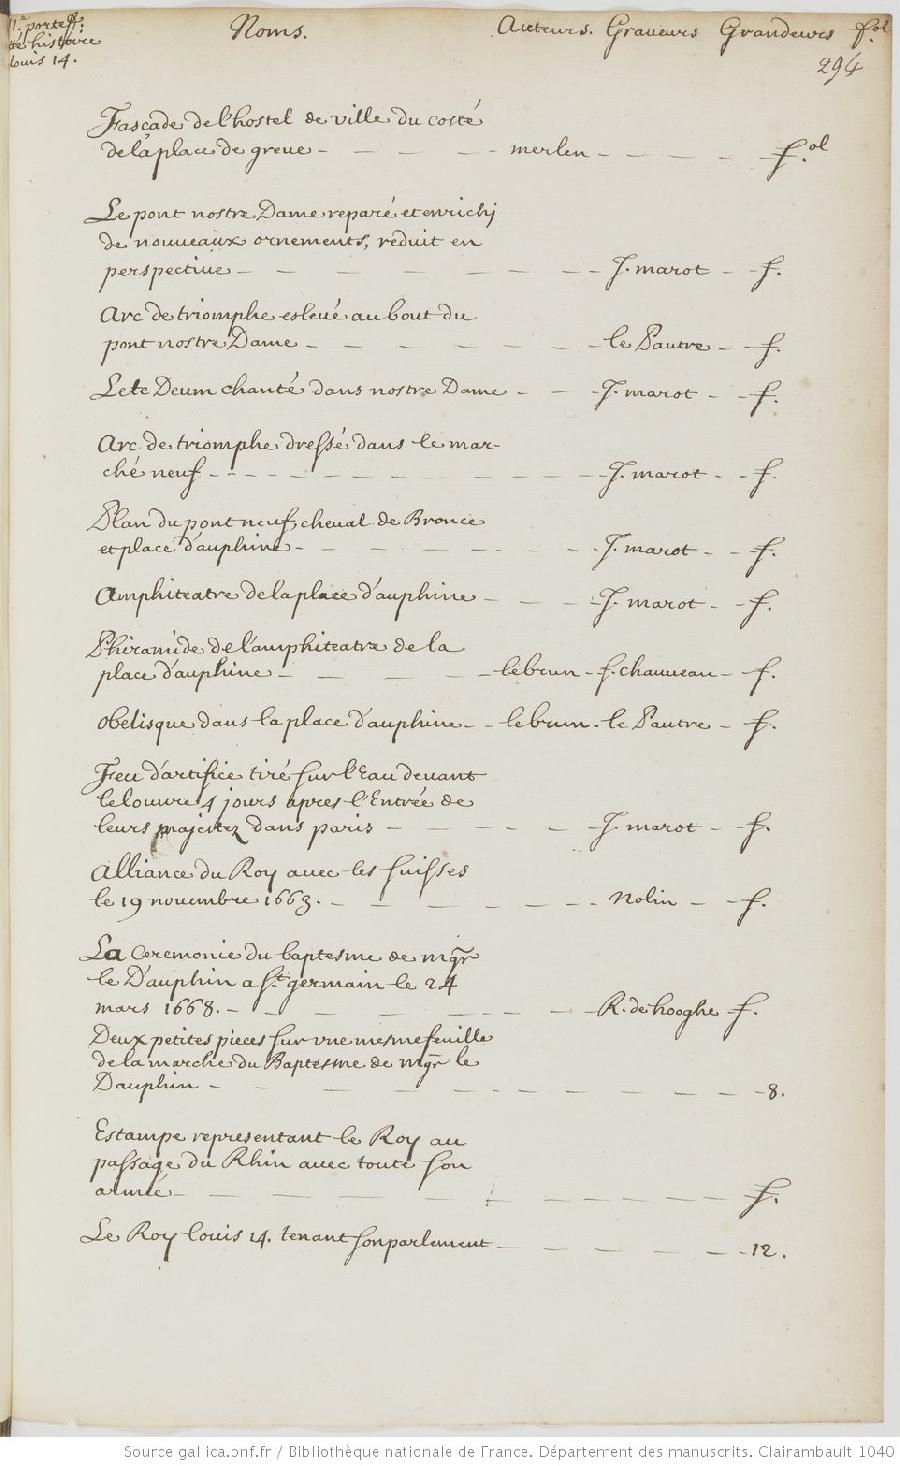 11.e portef.
de histoire
Louis 14.
Noms. Auteurs. Graveurs Grandeurs fol
294
Fasçade de l'hostel de ville du costé
de la place de greve - - - - merlen - - - - f.ol
Le pont nostre Dame reparé et enrichj
de nouveaux ornements, réduit en
perspective - - - - - - - J. marot - f.
Arc de triomphe eslevé au bout du
pont nostre Dame - - - - - - le Pautre - f.
Le te Deum chanté dans nostre Dame - - J. marot - f.
Arc de triomphe dressé dans le mar-
ché neuf - - - - - - - - J. marot - f.
Plan du pont neuf, cheval de Bronce
et place d'auphine - - - - - - J. marot - - f.
Amphiteatre de la place d'auphine - - - J. marot - f.
Phiramide de l'amphiteatre de la
place d'auphine - - - - - lebrun - f. chauveau - f.
Obelisque dans la place d'auphine - - lebrun - le Pautre - f.
Feu d'artifice tiré sur l'Eau devant
le louvre 4 jours apres l'Entrée de
leurs majestez dans paris - - - - J. marot - f.
Alliance du Roy avec les suisses
le 19 novembre 1663. - - - - - - Nolin - f.
La Ceremonie du baptesme de mgr
le Dauphin a St. germain le 24
mars 1668. - - - - - - - R. de hooghe f.
Deux petites pieces sur une mesme feuille
de la marche du Baptesme de mgr le
Dauphin - - - - - - - - - - 8.
Estampe representant le Roy au
passage du Rhin avec toute son
armée - - - - - - - - - - f.
Le Roy Louis 14. tenant son parlement - - - - 12.
Source gallica.bnf.fr / Bibliothèque nationale de France. Département des manuscrits. Clairambault 1040